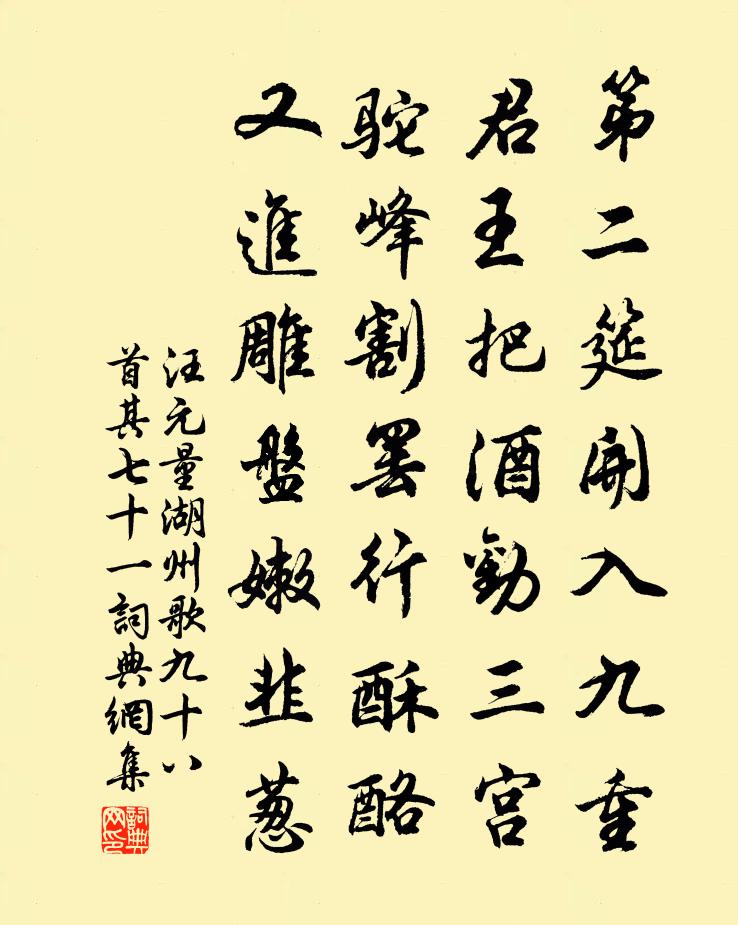 第二筵開入九重
君王把酒勸三宮
駝峰割罷行酥酪
又進雕盤嫩韭葱
汪元量湖州歌九十八
首其七十一詞典網集
詞典
网印